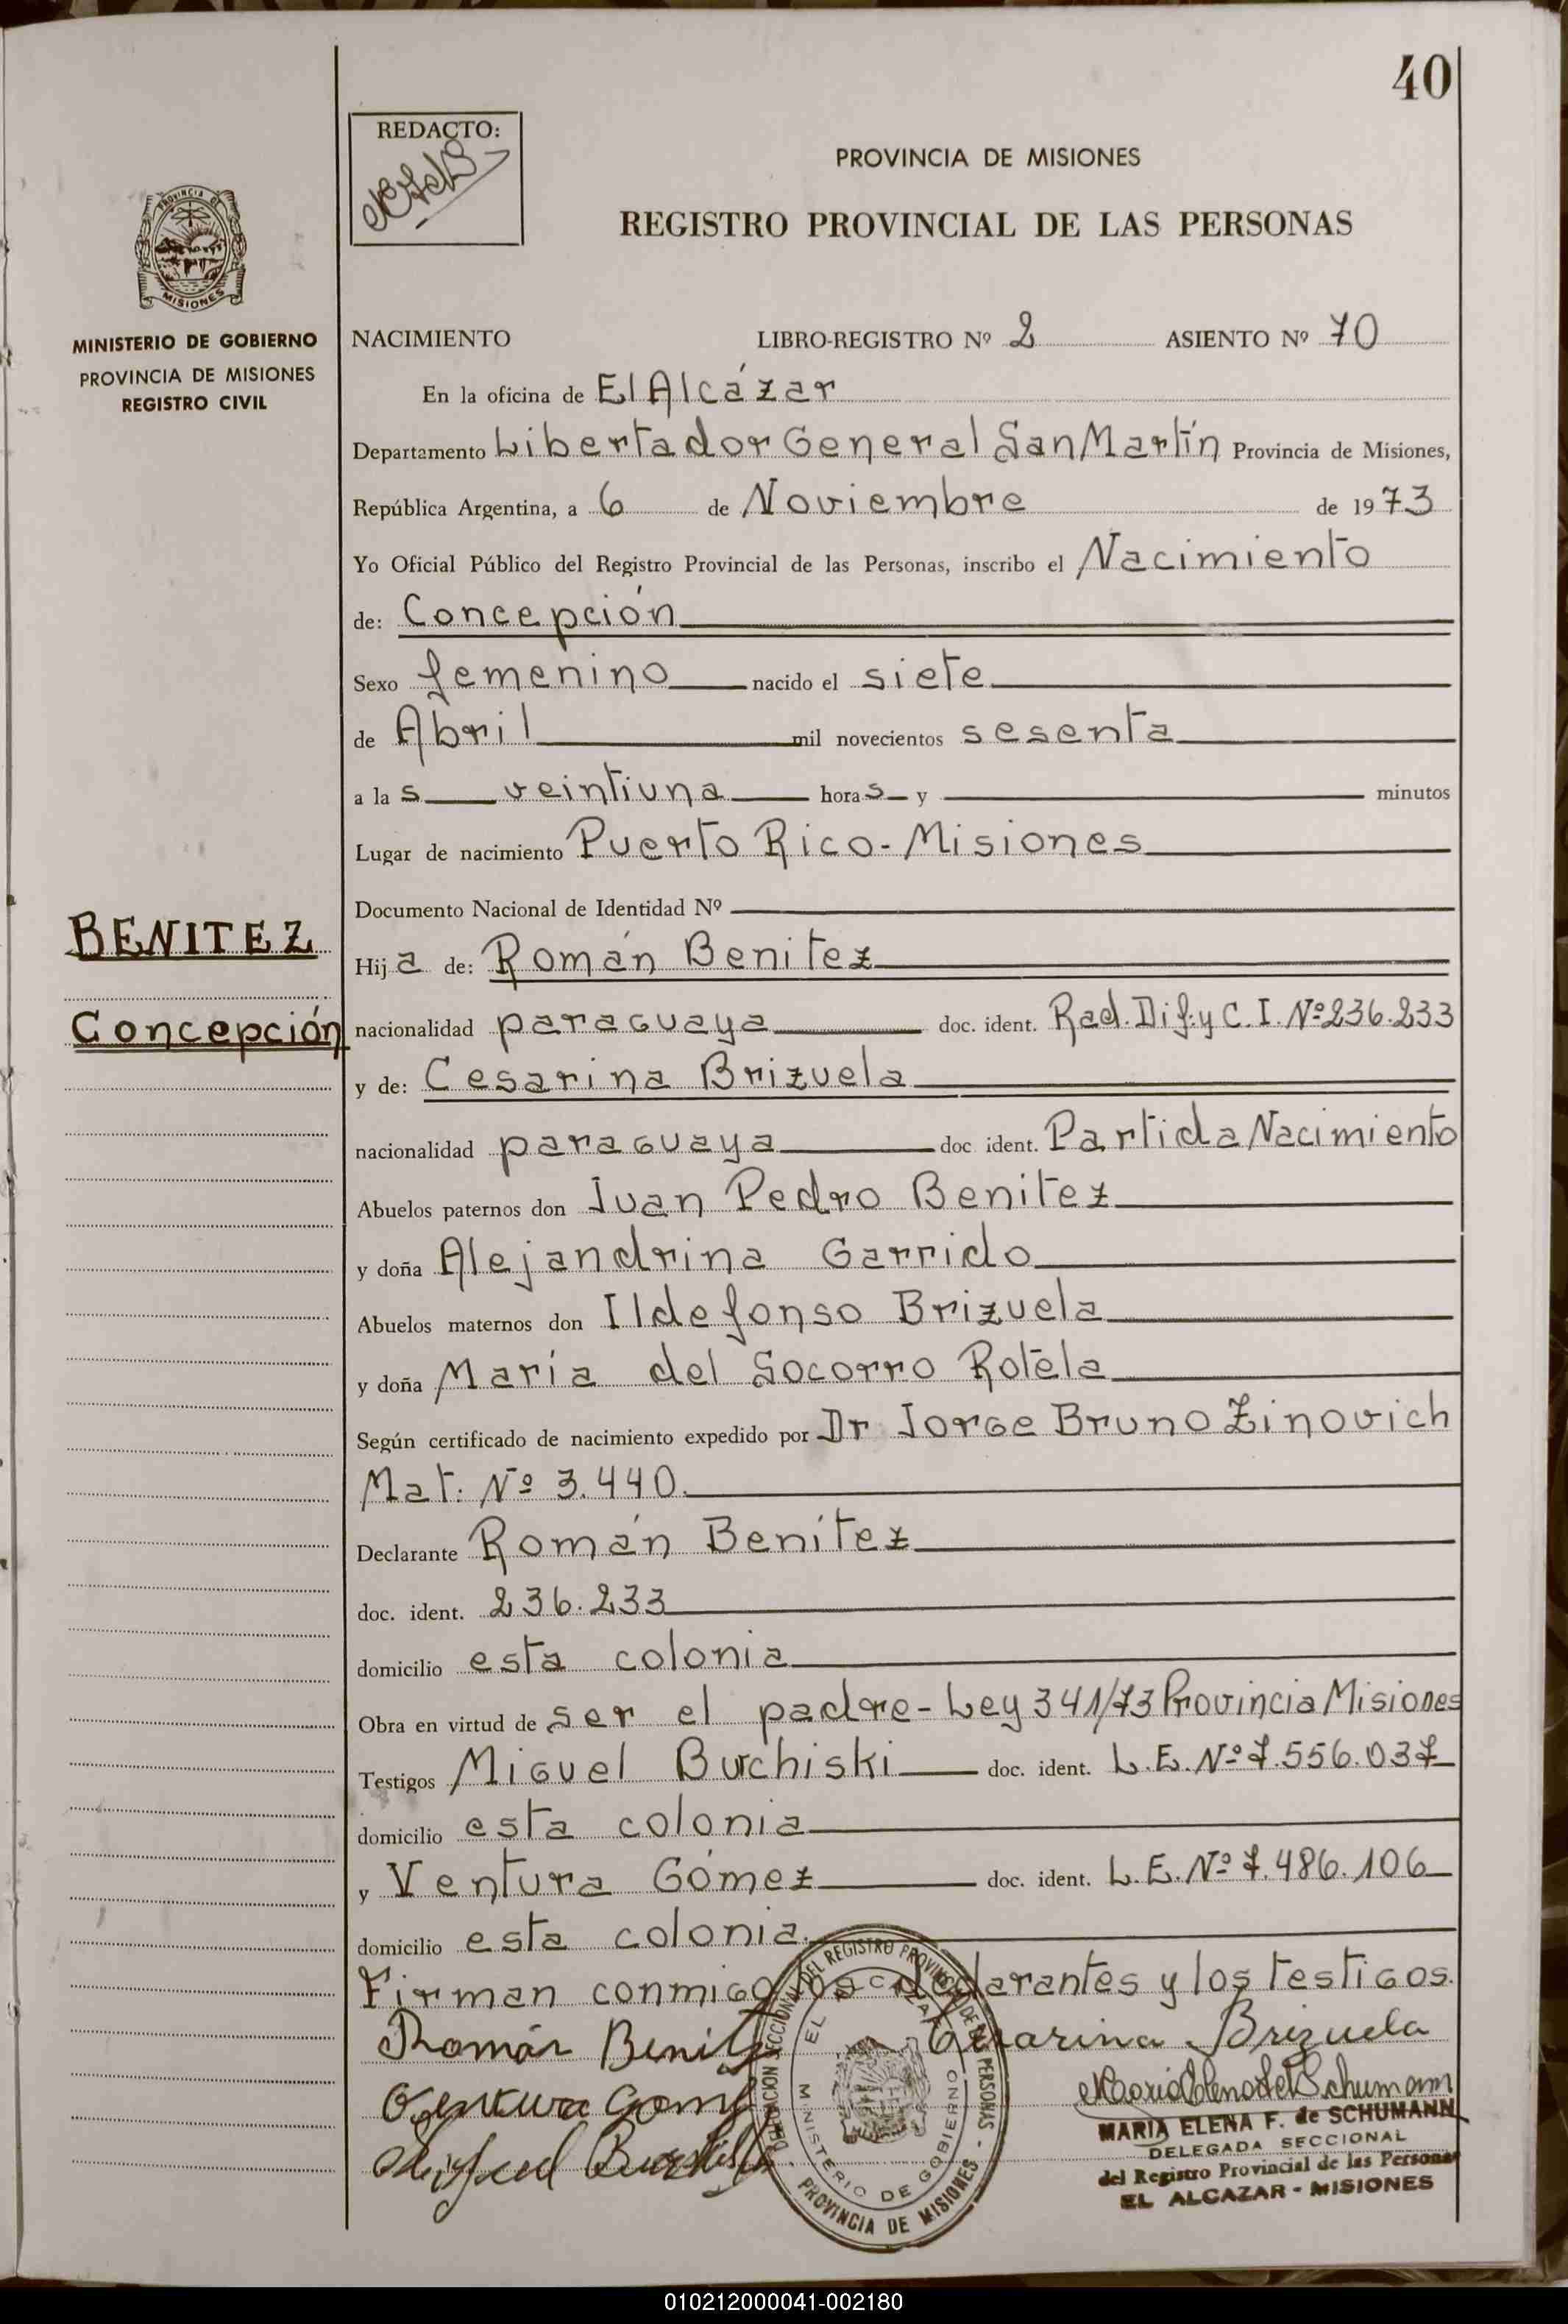 40
REDACTO:
PROVINCIA DE MISIONES
REGISTRO PROVINCIAL DE LAS PERSONAS
PROVINCIA DE
MISIONES
MINISTERIO DE GOBIERNO
PROVINCIA DE MISIONES
REGISTRO CIVIL
NACIMIENTO LIBRO-REGISTRO Nº 2 ASIENTO Nº 70
En la oficina de El Alcázar
Departamento Libertador General San Martín Provincia de Misiones,
República Argentina, a 6 de Noviembre de 1973
Yo Oficial Público del Registro Provincial de las Personas, inscribo el Nacimiento
de: Concepción
Sexo femenino nacido el siete
de Abril mil novecientos sesenta
a las veintiuna horas y minutos
Lugar de nacimiento Puerto Rico - Misiones
Documento Nacional de Identidad Nº
BENITEZ
Concepción
Hija de: Román Benitez
nacionalidad paraguaya doc. ident. Rad. Dif. y C. I. Nº 236.233
y de: Cesarina Brizuela
nacionalidad paraguaya doc ident. Partida Nacimiento
Abuelos paternos don Juan Pedro Benitez
y doña Alejandrina Garrido
Abuelos maternos don Ildefonso Brizuela
y doña María del Socorro Rotela
Según certificado de nacimiento expedido por Dr Jorge Bruno Zinovich
Mat. Nº 3.440.
Declarante Román Benítez
doc. ident. 236.233
domicilio esta colonia
Obra en virtud de ser el padre - Ley 341/73 Provincia Misiones
Testigos Miguel Buchiski doc. ident. L.E. Nº 7.556.037
domicilio esta colonia
y Ventura Gómez doc. ident. L.E. Nº 7.486.106
domicilio esta colonia.
Firman conmigo los declarantes y los testigos.
Román Benitez Cesarina Brizuela
Ventura Gomez
Miguel
DELEGACION SECCIONAL DEL REGISTRO PROVINCIAL DE LAS PERSONAS - PROVINCIA DE MISIONES -
EL ALCAZAR
MINISTERIO DE GOBIERNO
Maria Elena F. de Schumann
MARIA ELENA F. de SCHUMANN
DELEGADA SECCIONAL
del Registro Provincial de las Personas
EL ALCAZAR - MISIONES
010212000041-002180